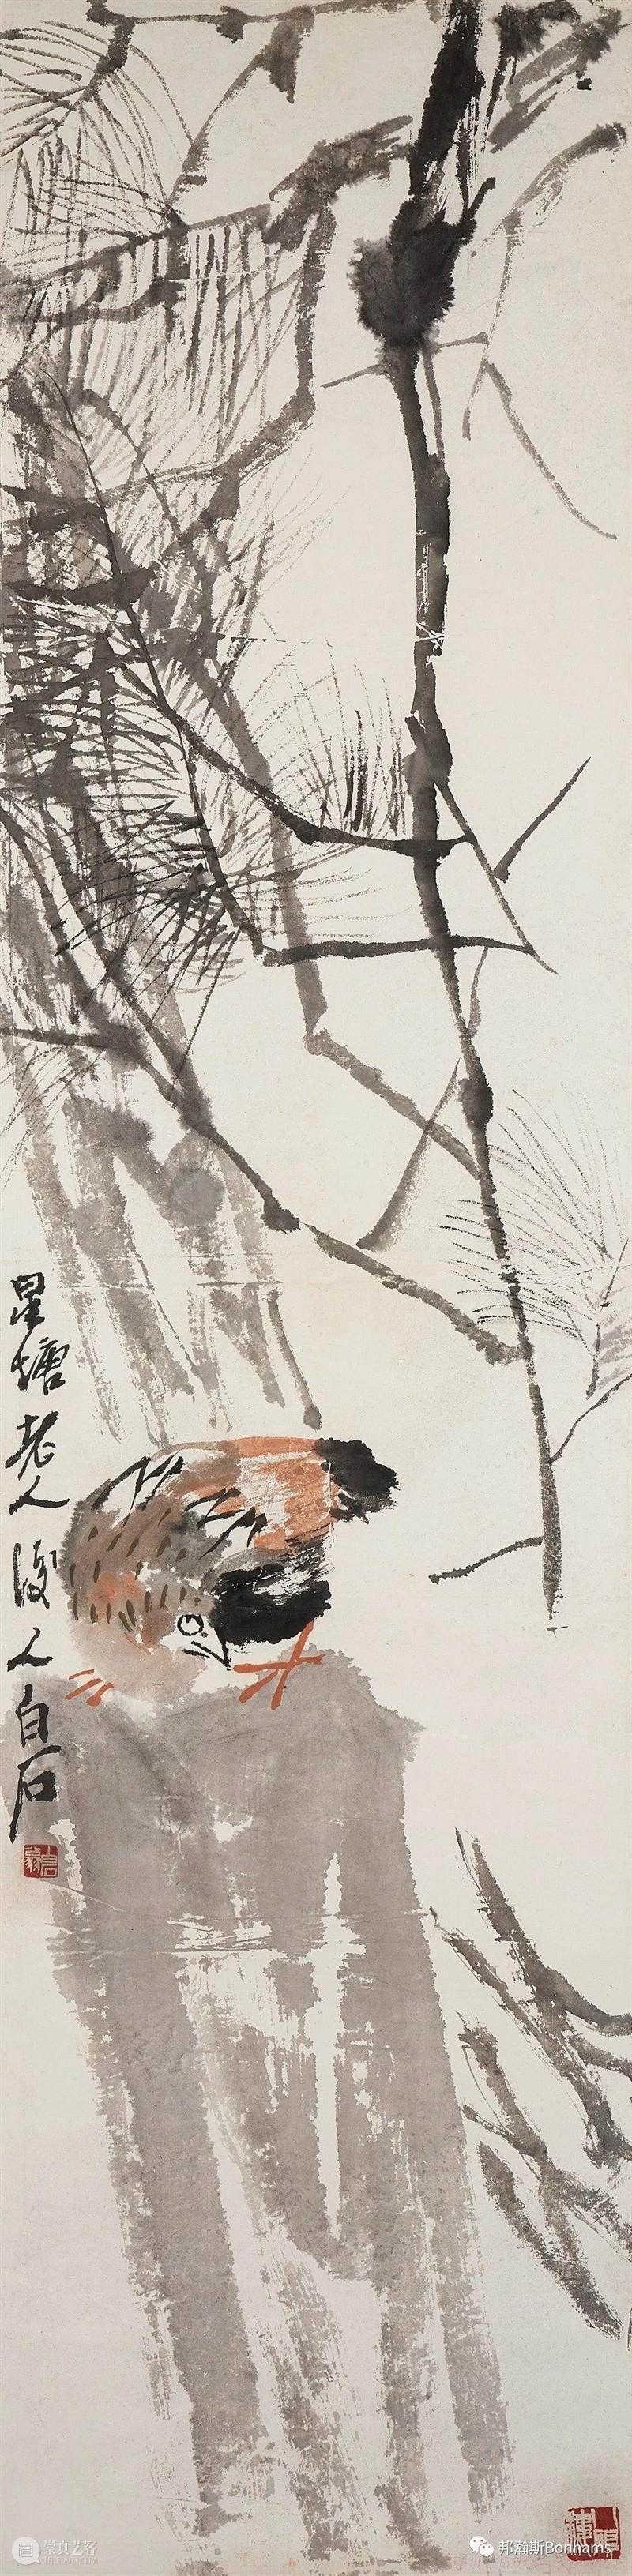 星塘老人後人白石
崇真艺客
邦瀚斯Bonhams